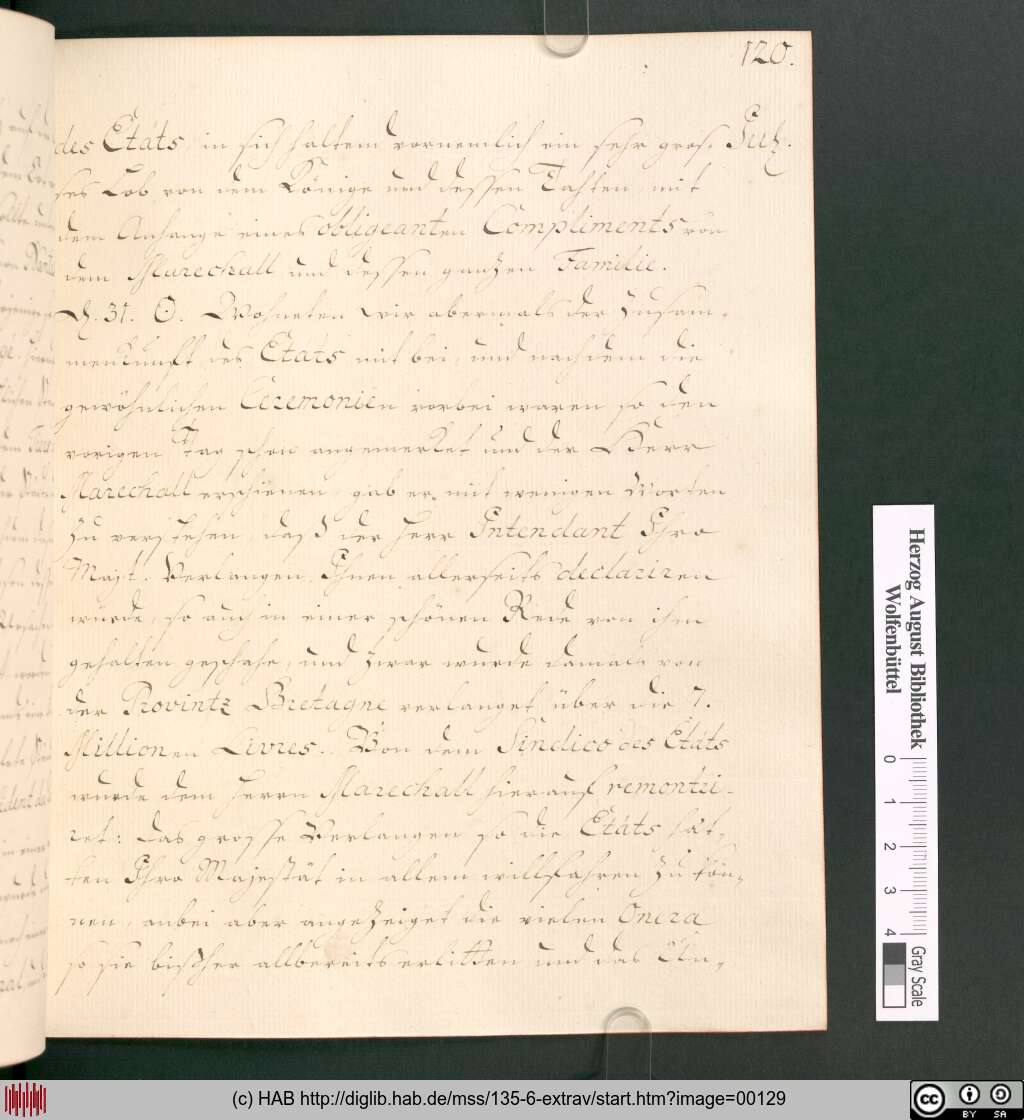 120.
des Etats, in sich haltend vornemlich ein sehr gros- Julÿ.
ses Lob von dem Könige und dessen Tahten, mit
dem Anhange eines obligeanten Compliments von
dem Marechall und dessen ganzen Familie.
D. 31. ☉. Wohneten wir abermals der Zusam-
menkunfft des Etats mit bei, und nachdem die
gewöhnlichen Ceremonien vorbei waren so den
vorigen Tag schon angemerket und der Herr
Marechall erschienen, gab er mit wenigen Worten
zu verstehen, daß der Herr Intendant Ihro
Majt. Verlangen, Ihnen allerseits declariren
würde, so auch in einer schönen Rede von ihm
gehalten geschahe, und zwar wurde damals von
der Provintz Bretagne verlanget über die 7.
Millionen Livres. Von dem Sindico des Etats
wurde dem Herrn Marechall hierauf remontri-
ret: das grosse Verlangen so die Etats hät-
ten Ihro Majestät in allem willfahren zu kön-
nen, anbei aber angezeiget die vielen Onera
so sie bishher allbereits erlitten und das Un-
Herzog August Bibliothek
Wolfenbüttel
0 1 2 3 4
Gray Scale
(c) HAB http://diglib.hab.de/mss/135-6-extrav/start.htm?image=00129
cc BY SA